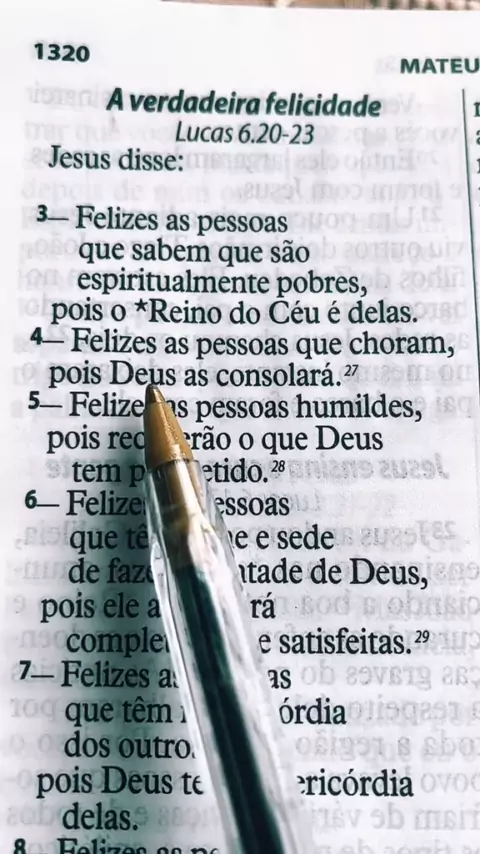 1320
MATEU
A verdadeira felicidade
Lucas 6.20-23
Jesus disse:
3— Felizes as pessoas
que sabem que são
espiritualmente pobres,
pois o *Reino do Céu é delas.
4— Felizes as pessoas que choram,
pois Deus as consolará.27
5— Felizes as pessoas humildes,
pois receberão o que Deus
tem prometido.28
6— Felizes
que e sede
de Deus,
pois ele
e satisfeitas.29
7— Felizes as
que têm
dos outros
pois Deus
delas.
8 Felizes as